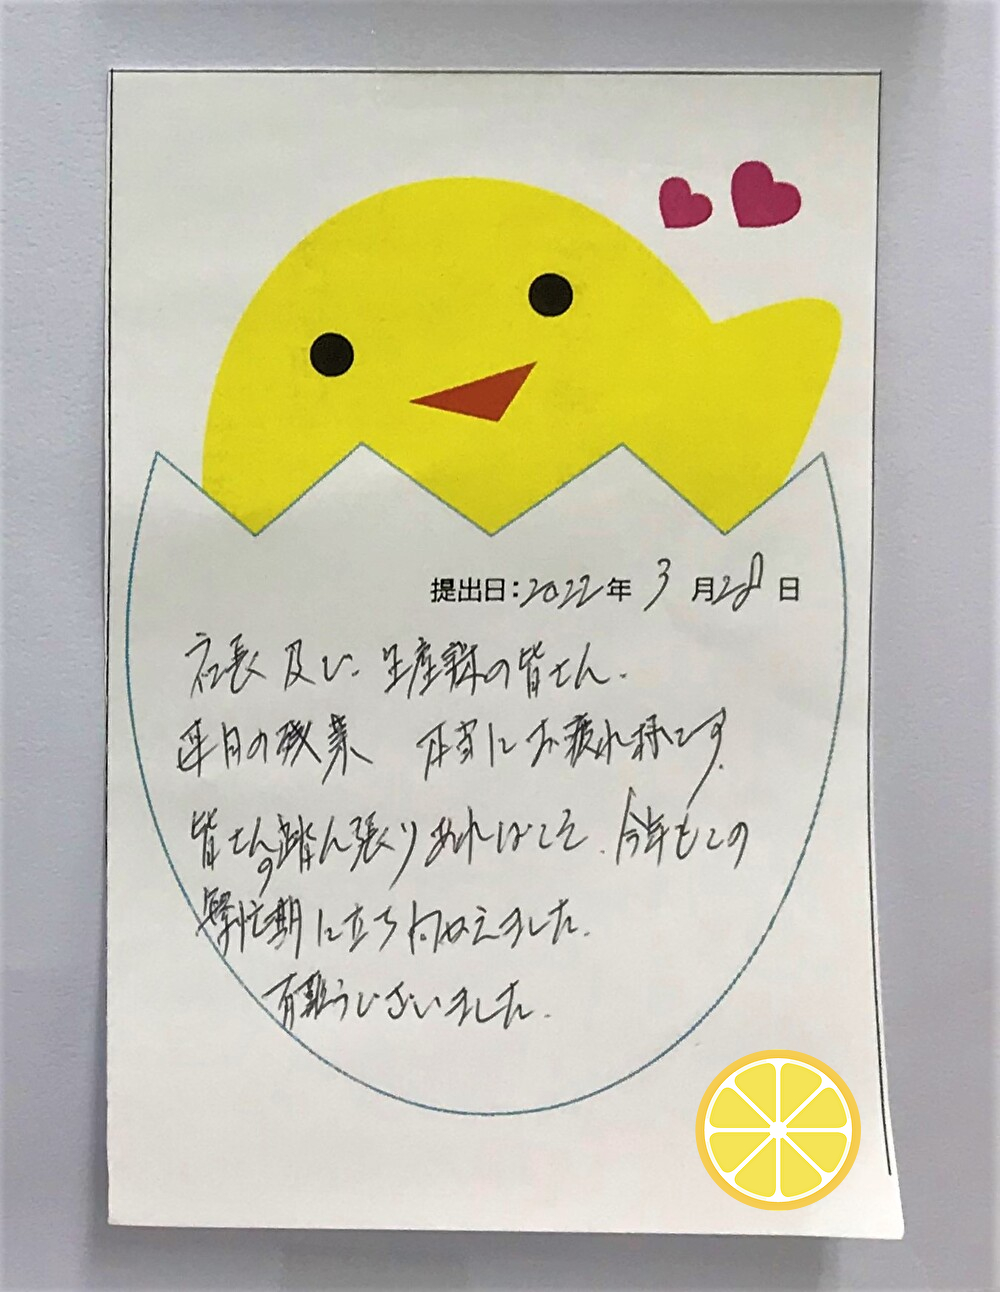 提出日：2022年 3月28日
社長 及び 生産課の皆さん.
連日の残業 本当にお疲れ様です.
皆さんの踏ん張りあればこそ. 今年もこの
繁忙期に立ち向かえました.
有難うございました.